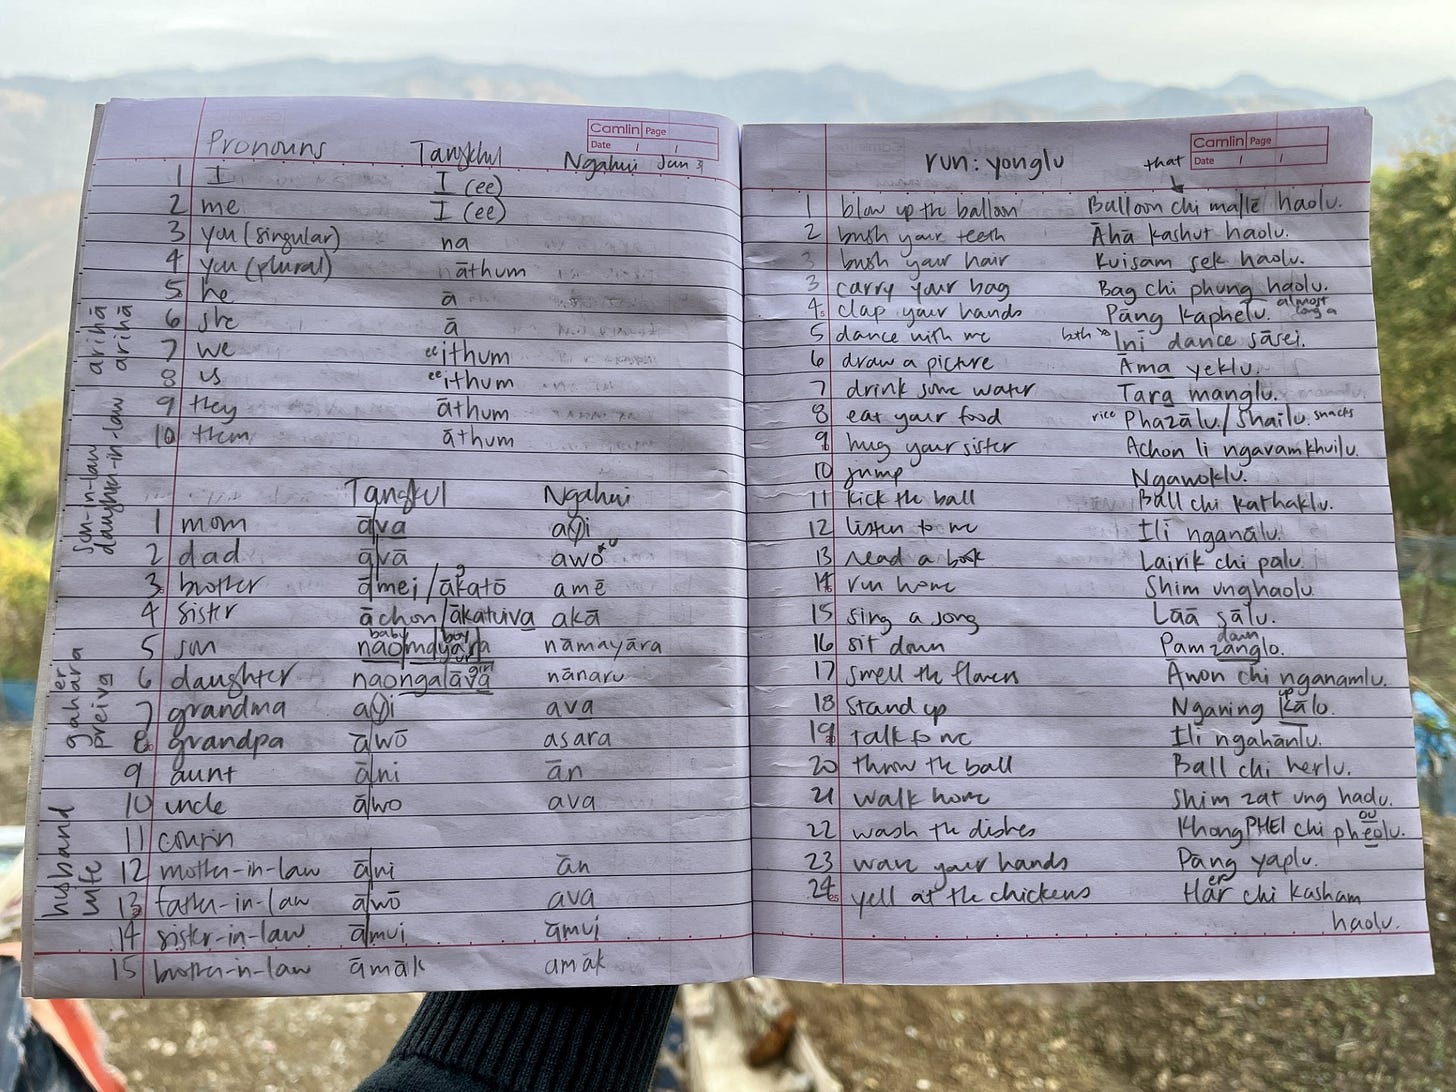 Camlin Page
Date / /
Pronouns Tangkhul Ngahui Jan
1 I I (ee)
2 me I (ee)
3 you (singular) na
4 you (plural) nāthum
5 he ā
6 she ā
7 we ee ithum
8 us ee ithum
9 they āthum
10 them āthum
Tangkul Ngahui
1 mom āva ayi
2 dad avā awo
3 brother āmei / ākatō amē
4 sister āchon / ākatuiva akā
baby boy
5 son naomayara nāmayāra
girl
6 daughter naongalāva nānaru
7 grandma ayi ava
8 grandpa āwō asara
9 aunt āni ān
10 uncle āwo ava
11 cousin
12 mother-in-law āni ān
13 father-in-law āwō ava
14 sister-in-law āmui āmui
15 brother-in-law āmāk amāk
arihā
arihā
son-in-law
daughter-in-law
er
gahara
preiva
husband
wife
Camlin Page
Date / /
run: yonglu
that
1 blow up the balloon Balloon chi mallē haolu.
2 brush your teeth Āhā kashut haolu.
brush your hair Kuisam sek haolu.
3 carry your bag Bag chi phung haolu.
4 clap your hands Pāng kaphelu. almost long a
5 dance with me both Ini dance sāsei.
6 draw a picture Āma yeklu.
7 drink some water Tara manglu.
8 eat your food rice Phazālu / Shailu. snacks
9 hug your sister Achon li ngavamkhuilu.
10 jump Ngawoklu.
11 kick the ball Ball chi kathaklu.
12 listen to me Ili nganālu.
13 read a book Lairik chi palu.
14 run home Shim unghaolu.
15 sing a song Lāā sālu.
down
16 sit down Pamzānglo.
17 smell the flower Awon chi nganamlu.
up
18 stand up Nganing kālo.
19 talk to me Ili ngahānlu.
20 throw the ball Ball chi herlu.
21 walk home Shim zat ung haolu.
ou
22 wash the dishes KhongPHEI chi phēolu.
23 wave your hands Pāng yaplu.
er
24 yell at the chickens Har chi kasham
haolu.